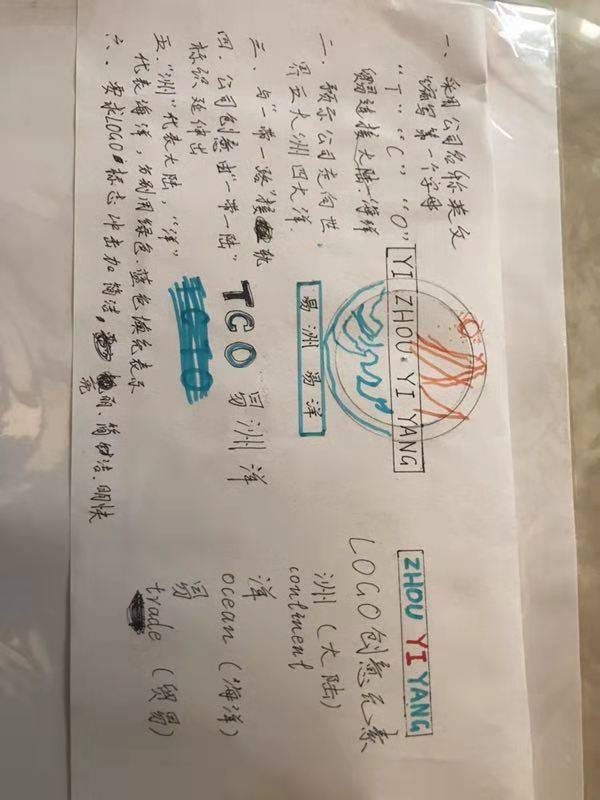 ZHOU YI YANG
LOGO创意元素
洲（大陆）
continent
洋
ocean（海洋）
易
trade（贸易）
YI ZHOU·YI YANG
易洲易洋
TCO 易洲洋
一、采用公司名称英文
编写第一个字母
"T" "C" "O"
贸易连接大陆海洋
二、预示公司走向世
界五大洲四大洋.
三、与"一带一路"接轨
四、公司创意由"一带一陆"
标识延伸出
五、"洲"代表大陆，"洋"
代表海洋，分别用绿色.蓝色填充表示
六、要求LOGO标志冲击加简洁，亮丽、简洁.明快